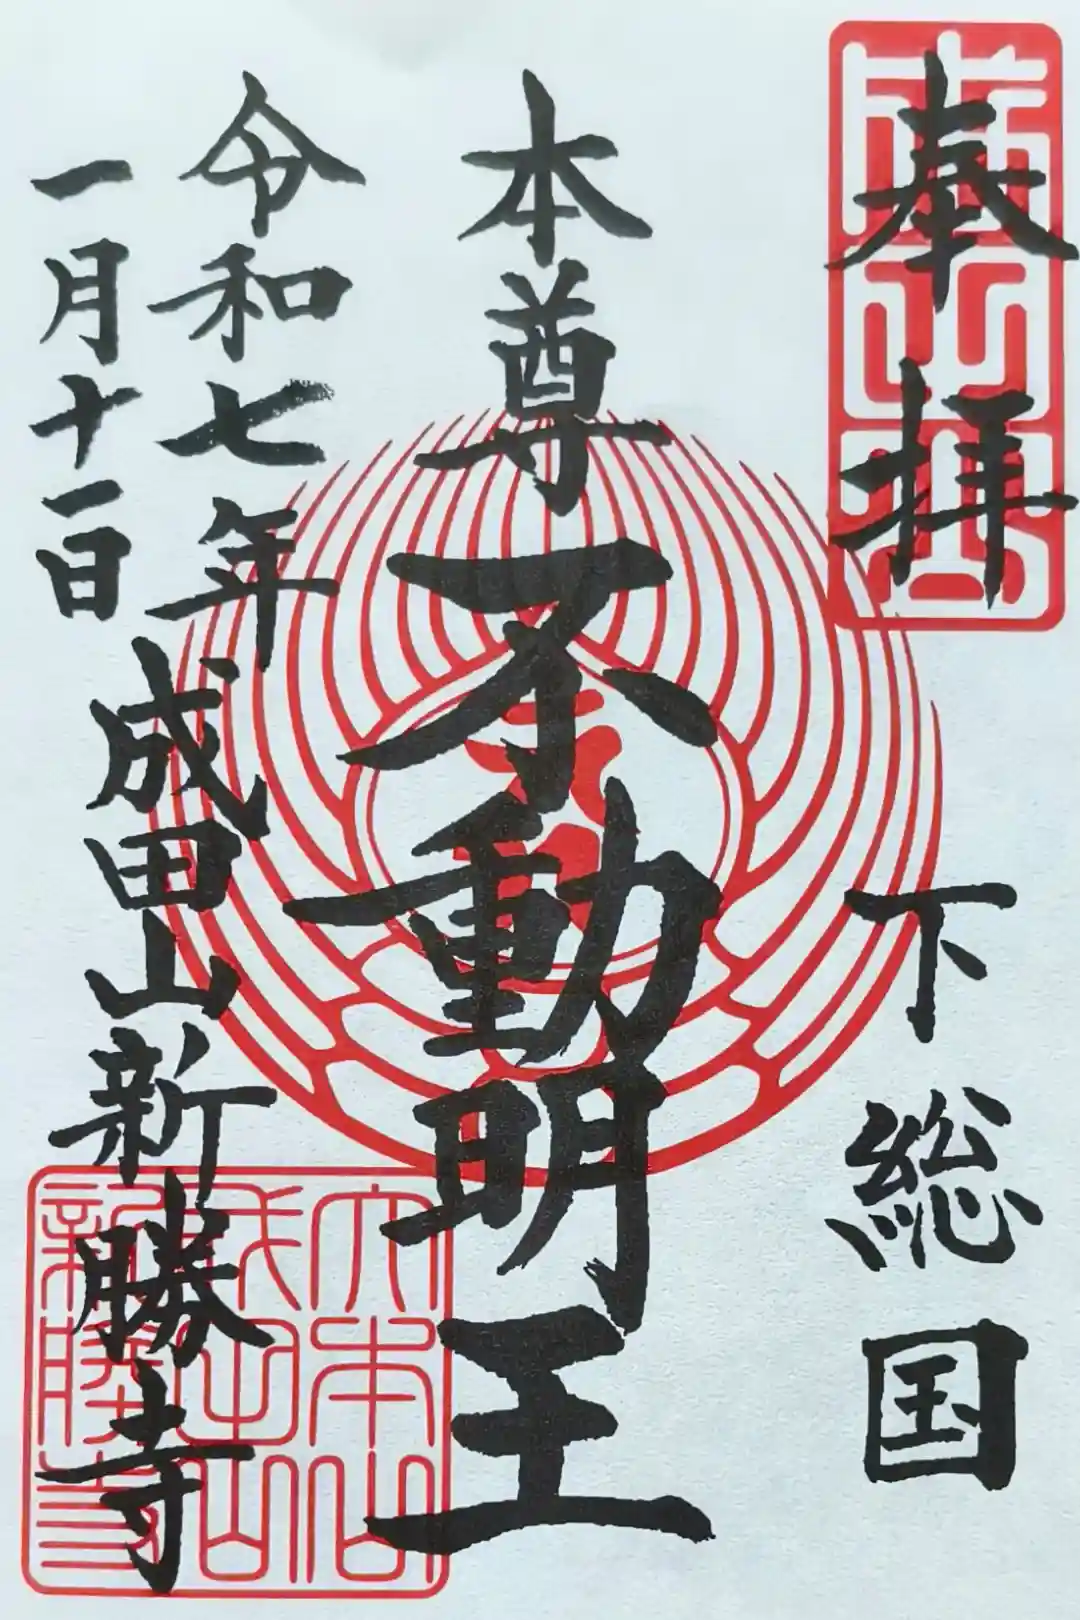 奉拝
下総国
本尊不動明王
令和七年
一月十一日
成田山新勝寺
大本山
成田山
新勝寺